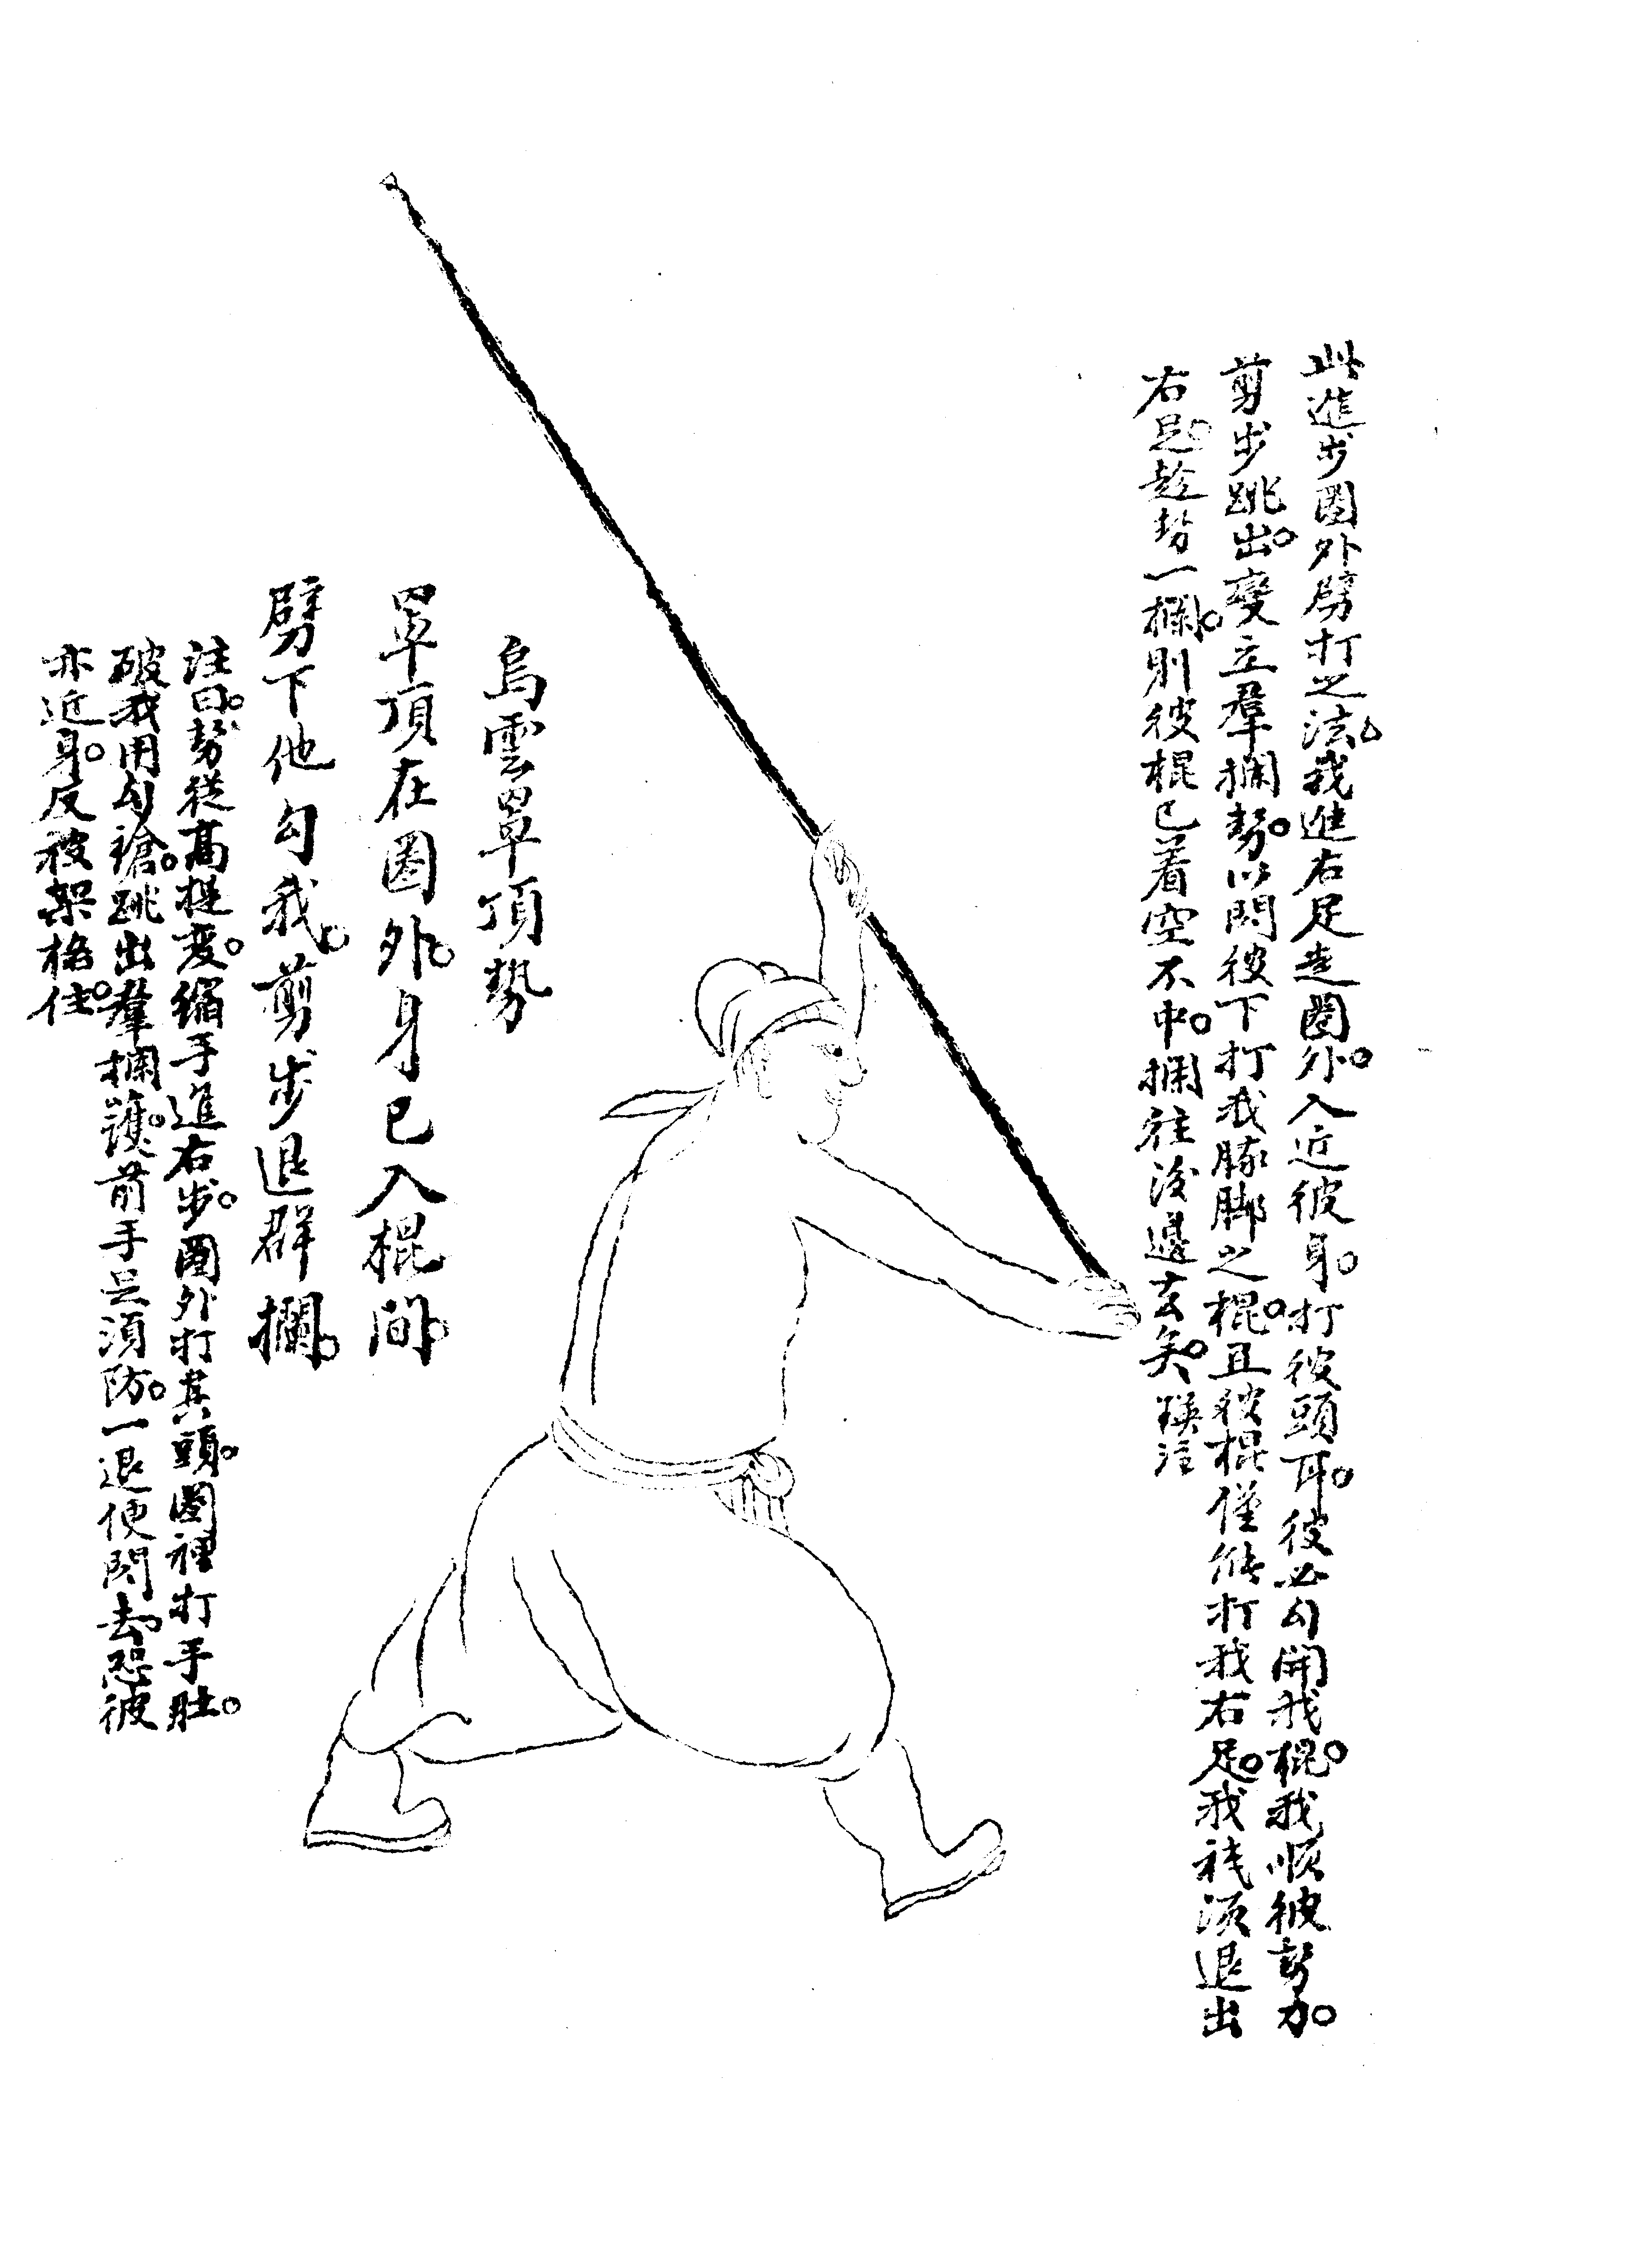 此進步圈外劈打之法。我進右足走圈外。入近彼身。打彼頭耳。彼必勾開我棍。我順彼势力。
剪步跳出。變立羣攔势。以閃彼下打我膝脚之棍。且彼棍僅能打我右足。我祇須退出
右足。趁势一攔。則彼棍已着空不中。攔往後邊去矣。瑛注
烏雲罩頂勢
罩頂在圈外。身已入棍間。
劈下他勾我。剪步退群攔。
注曰。势從高提变。縮手進右步。圈外打其頭。圈裡打手肚。
破我用勾槍。跳出羣攔護。前手足須防。一退便閃去。恐彼
亦近身。反被架格住。